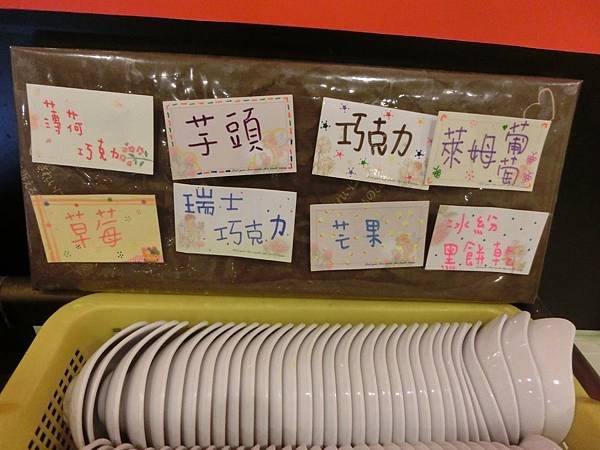 薄荷
巧克力
芋頭
巧克力
萊姆葡萄
草莓
瑞士
巧克力
芒果
冰紛
黑餅乾